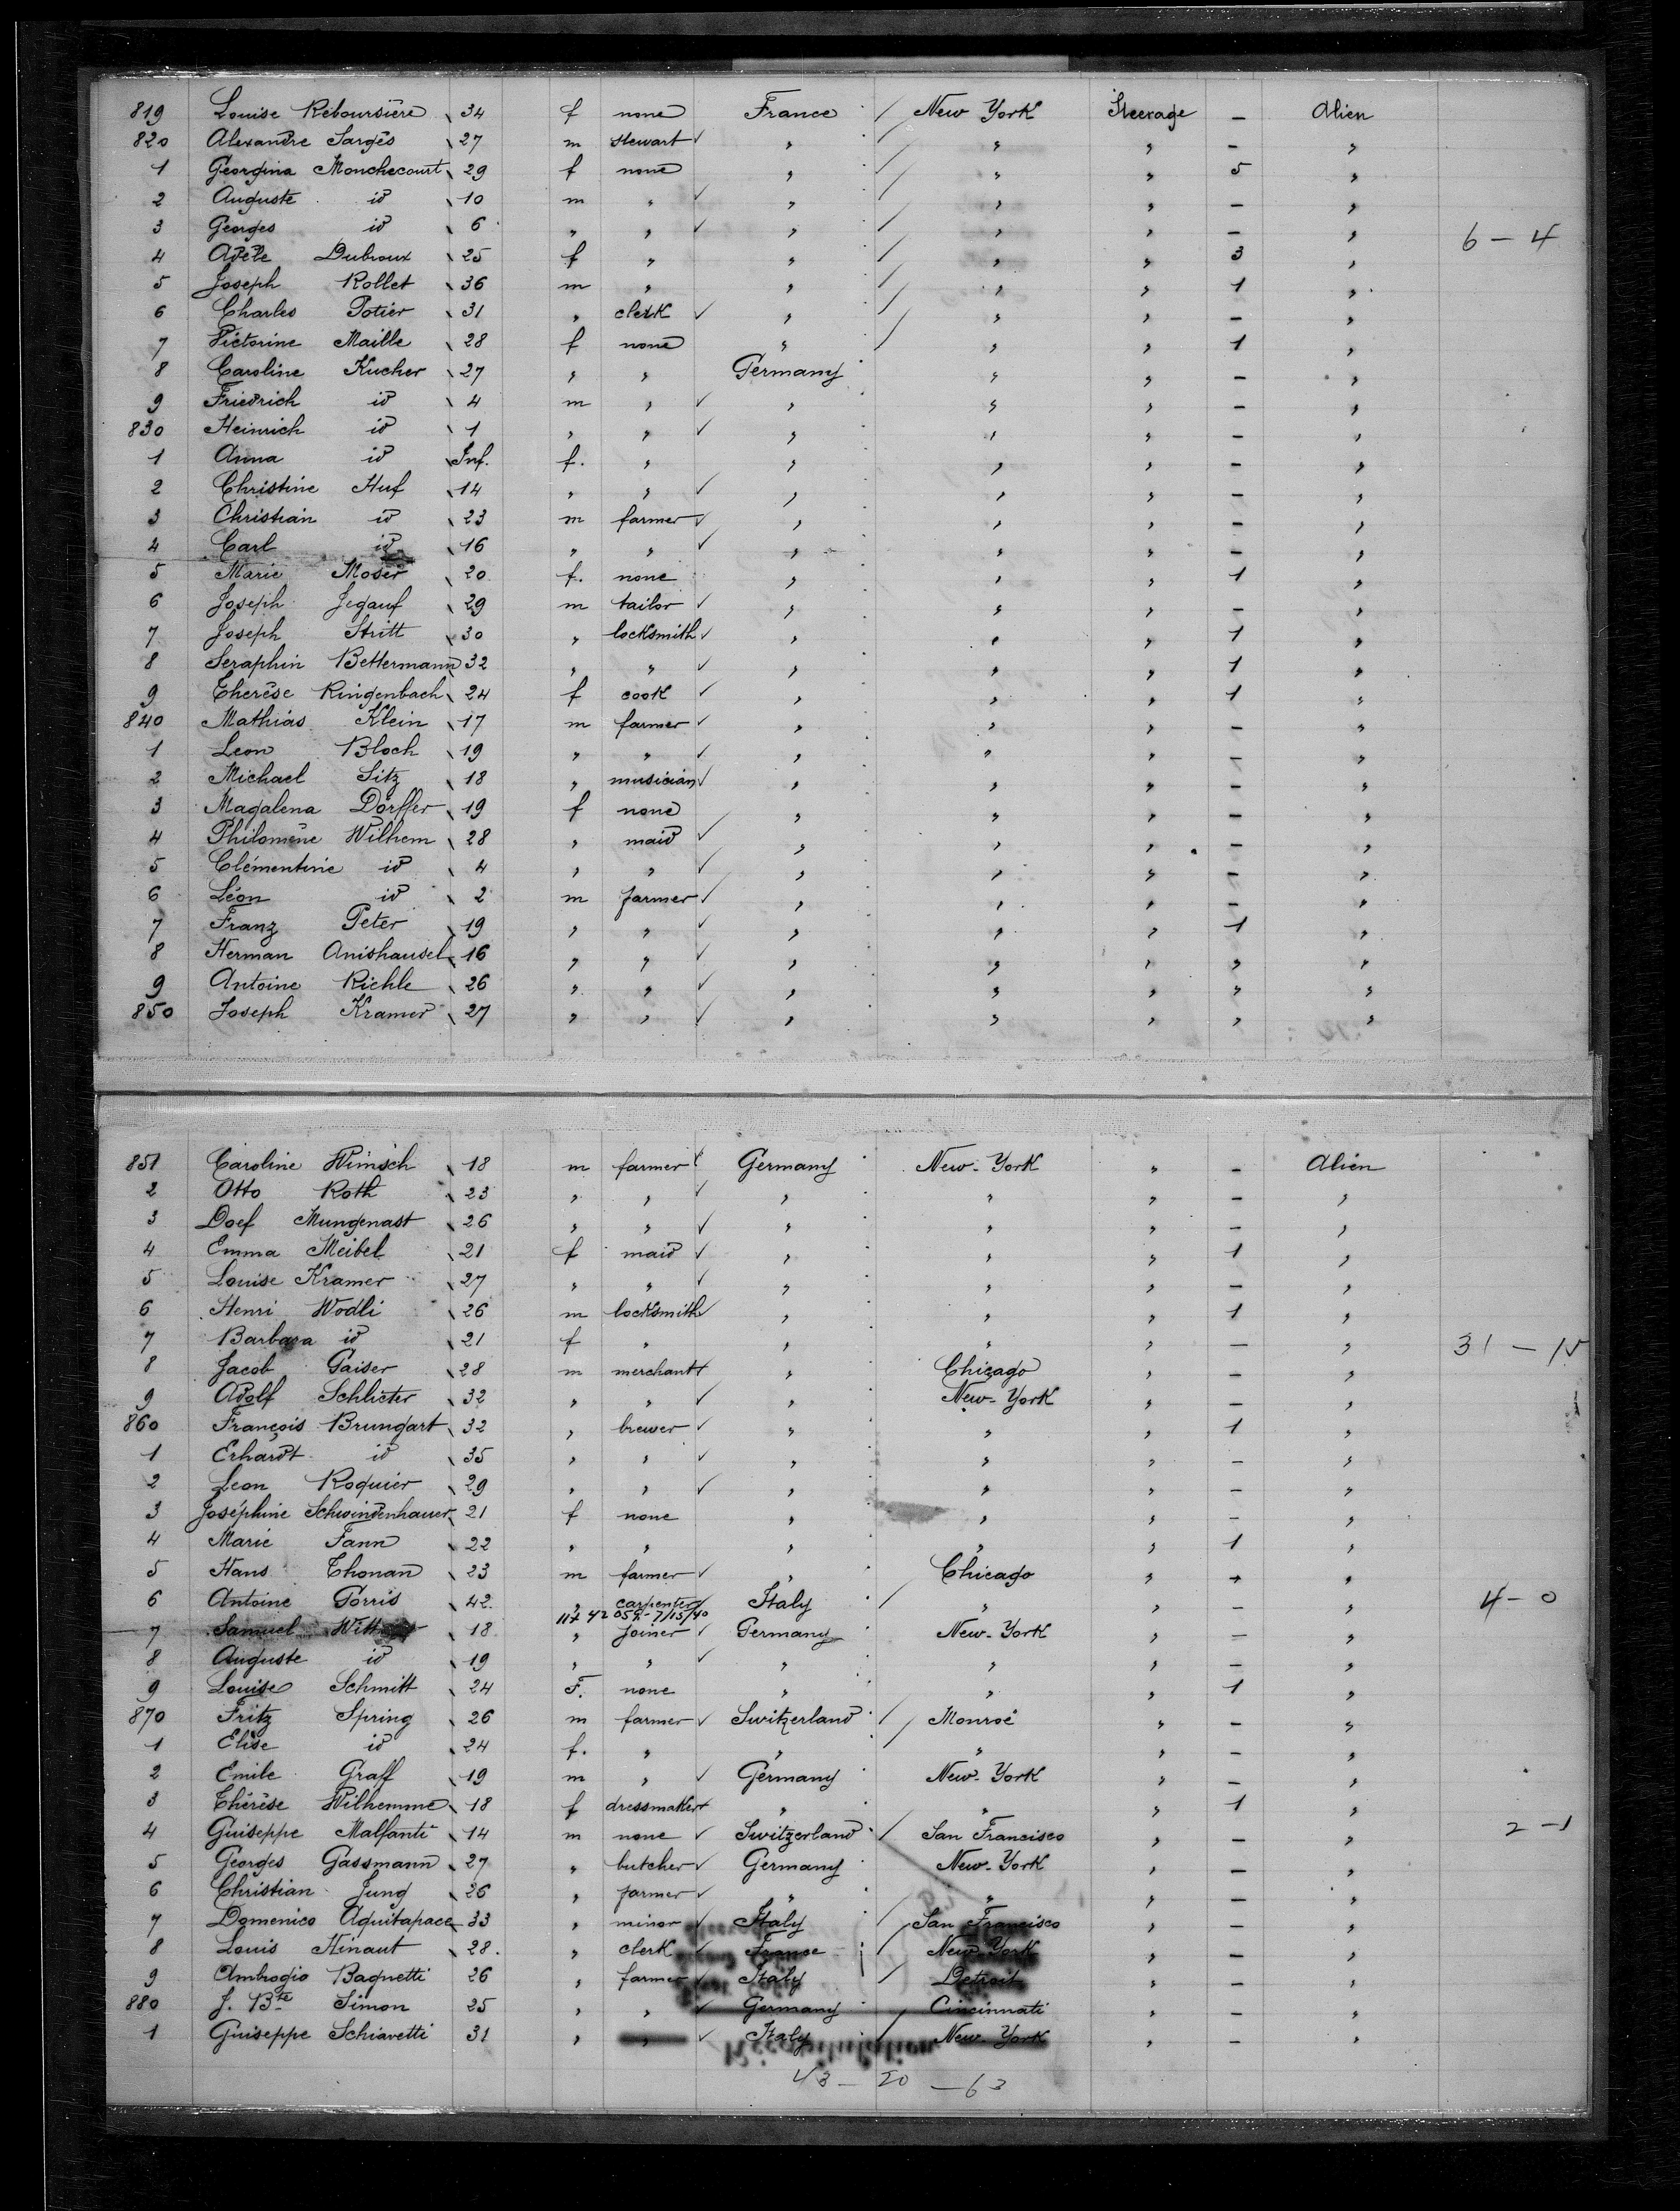 819 Louise Reboursière 34 f none France New York Steerage — Alien
820 Alexandre Sargès 27 m stewart " " " — "
1 Georgina Monchecourt 29 f none " " " 5 "
2 Auguste id 10 m " " " " — "
3 Georges id 6 " " " " " — " 6 - 4
4 Adèle Dubroux 25 f " " " " 3 "
5 Joseph Rollet 36 m " " " " 1 "
6 Charles Potier 31 " clerk " " " — "
7 Victorine Maille 28 f none " " " 1 "
8 Caroline Kucher 27 " " Germany " " — "
9 Friedrich id 4 m " " " " — "
830 Heinrich id 1 " " " " " — "
1 Anna id Inf. f. " " " " — "
2 Christine Huf 14 " " " " " — "
3 Christian id 23 m farmer " " " — "
4 Carl id 16 " " " " " — "
5 Marie Moser 20 f. none " " " 1 "
6 Joseph Jegauf 29 m tailor " " " — "
7 Joseph Stritt 30 " locksmith " " " 1 "
8 Seraphin Bettermann 32 " " " " " 1 "
9 Therèse Ringenbach 24 f cook " " " 1 "
840 Mathias Klein 17 m farmer " " " — "
1 Leon Bloch 19 " " " " " — "
2 Michael Sitz 18 " musician " " " — "
3 Magalena Dörffer 19 f none " " " — "
4 Philomène Wilhem 28 " maid " " " — "
5 Clémentine id 4 " " " " " — "
6 Léon id 2 m farmer " " " — "
7 Franz Peter 19 " " " " " 1 "
8 Herman Anishausel 16 " " " " " " "
9 Antoine Richle 26 " " " " " " "
850 Joseph Kramer 27 " " " " " " "
851 Caroline Wimsch 18 m farmer Germany New-York " — Alien
2 Otto Roth 23 " " " " " — "
3 Doef Mungenast 26 " " " " " — "
4 Emma Meibel 21 f maid " " " 1 "
5 Louise Kramer 27 " " " " " — "
6 Henri Wodli 26 m locksmith " " " 1 "
7 Barbara id 21 f " " " " — " 31 - 15
8 Jacob Gaiser 28 m merchant " Chicago " — "
9 Adolf Schlicter 32 " " " New-York " — "
860 François Brungart 32 " brewer " " " 1 "
1 Erhardt id 35 " " " " " — "
2 Leon Roquier 29 " " " " " — "
3 Joséphine Schwindenhauer 21 f none " " " — "
4 Marie Fann 22 " " " " " 1 "
5 Hans Thonan 23 m farmer " Chicago " " "
6 Antoine Porris 42 " carpenter Italy " " — " 4 - 0
11x 42 052 - 7/15/40
7 Samuel 18 " joiner Germany New-York " — "
8 Auguste id 19 " " " " " — "
9 Louise Schmitt 24 F. none " " " 1 "
870 Fritz Spring 26 m farmer Switzerland Monroe " — "
1 Elise id 24 f. " " " " — "
2 Emile Graff 19 m " Germany New-York " — "
3 Thérèse Wilhemme 18 f dressmaker " " " 1 "
4 Guiseppe Malfanti 14 m none Switzerland San Francisco " — " 2 - 1
5 Georges Gassmann 27 " butcher Germany New-York " — "
6 Christian Jung 26 " farmer " " " — "
7 Domenico Aquitapace 33 " minor Italy San Francisco " — "
8 Louis Hinaut 28. " clerk France New York " — "
9 Ambrogio Bagnetti 26 " farmer Italy Detroit " — "
880 J. Bte Simon 25 " " Germany Cincinnati " — "
1 Guiseppe Schiavetti 31 " " Italy New-York " — "
Récapitulation
43 — 20 — 63